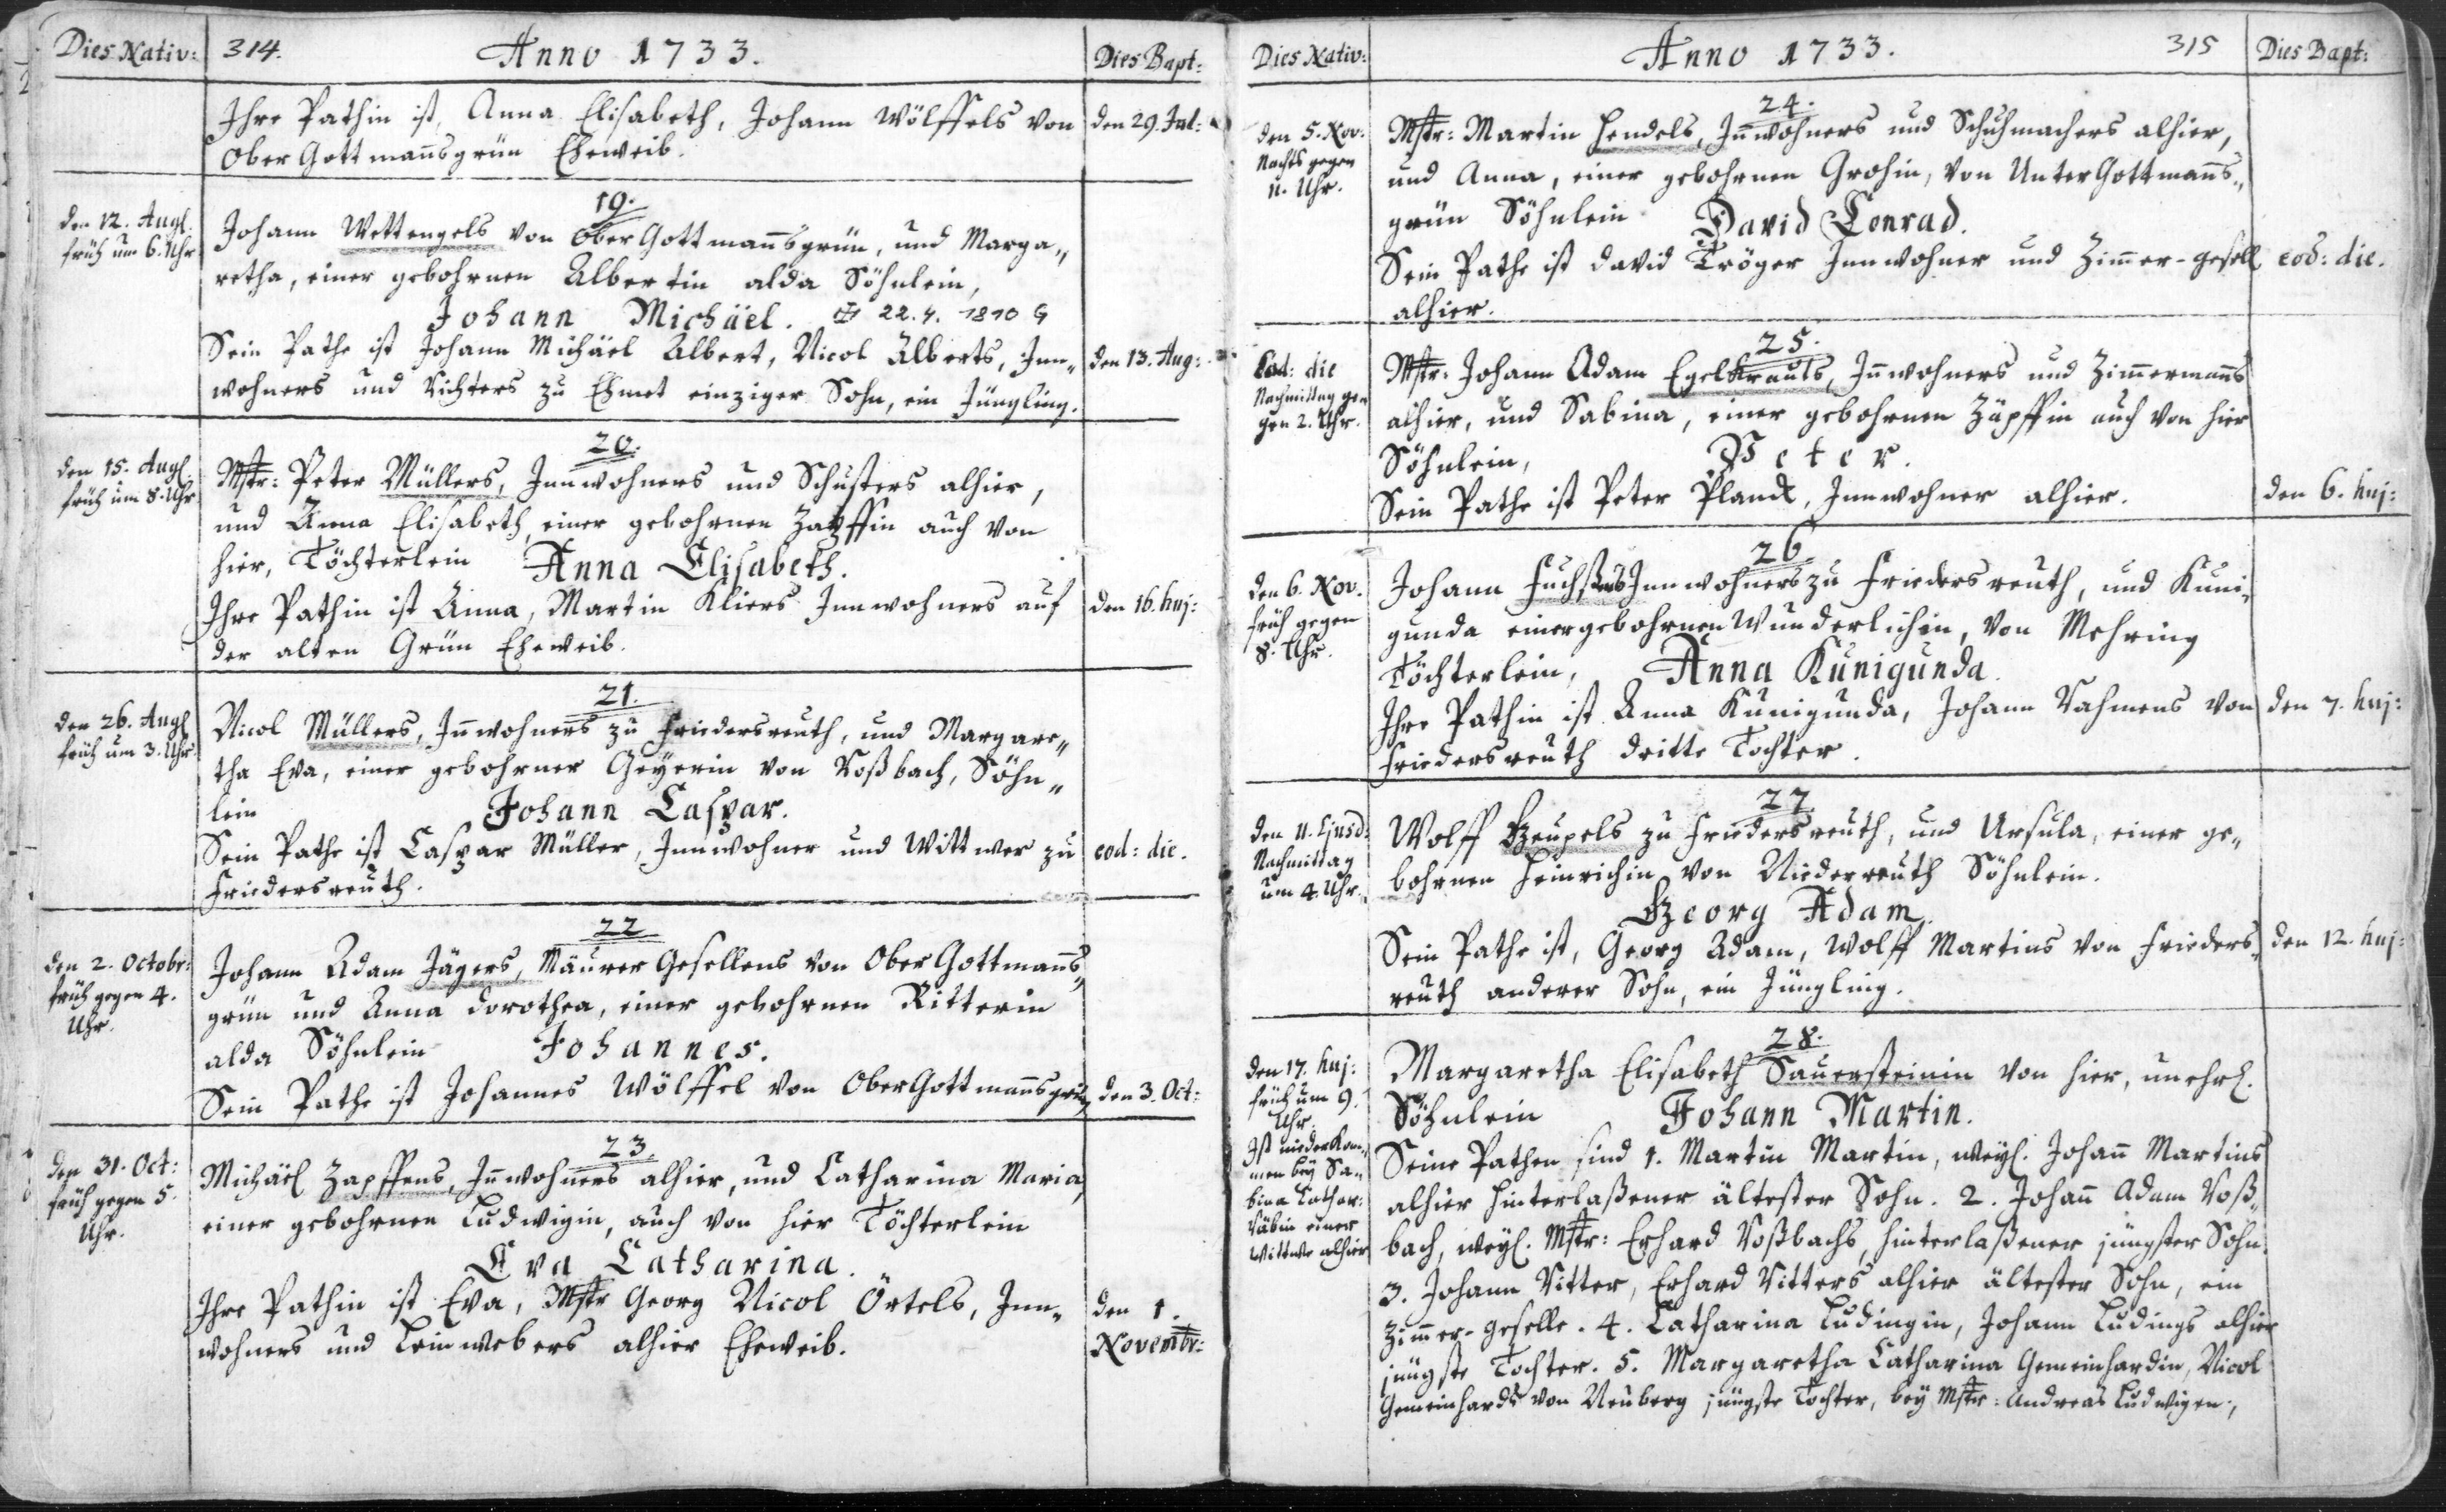 Dies Nativ: 314. Anno 1733. Dies Bapt:
Ihre Pathin ist, Anna Elisabeth, Johann Wölffels von den 29. Jul:
Ober Gottmanßgrün Eheweib.
19.
den 12. Augl. Johann Wettengels von Ober Gottmanßgrün, und Marga„
früh um 6. Uhr
retha, einer gebohrnen Albertin alda Söhnlein,
Johann Michäel. 22. 4. 1810
Sein Pathe ist Johann Michäel Albert, Nicol Alberts, Inn„ den 13. Aug:
wohners und Richters zu einziger Sohn, ein Jüngling.
20.
den 15. Augl. Mstr: Peter Müllers, Innwohners und Schusters alhier,
früh um 8. Uhr
und Anna Elisabeth, einer gebohrnen Zapffin auch von
hier, Töchterlein Anna Elisabeth.
Ihre Pathin ist Anna, Martin Kliers Innwohners auf den 16. huj:
der alten Grün Eheweib.
21.
den 26. Augl. Nicol Müllers, Iñwohners zu Friedersreuth, und Margare„
früh um 3. Uhr
tha Eva, einer gebohrner Geÿerin von Roßbach, Söhn„
lein Johann Caspar.
Sein Pathe ist Caspar Müller, Innwohner und Wittwer zu eod: die.
Friedersreuth.
22
den 2. Octobr: Johann Adam Jägers, Maurer Gesellens von Ober Gottmañs„
früh gegen 4.
Uhr.
grün und Anna Dorothea, einer gebohrnen Ritterin
alda Söhnlein Johannes.
Sein Pathe ist Johannes Wölffel von Ober Gottmañsgrün den 3. Oct:
23.
den 31. Oct: Michäel Zapffens, Iñwohners alhier, und Catharina Maria,
früh gegen 5.
Uhr.
einer gebohrnen Ludwigin, auch von hier Töchterlein
Eva Catharina.
Ihre Pathin ist Eva, Mstr Georg Nicol Örtels, Inn„ den 1.
wohners und Leinwebers alhier Eheweib. Novembr:
Dies Nativ: Anno 1733. 315 Dies Bapt:
24.
den 5. Nov. Mstr: Martin Hendels, Iñwohners und Schuhmachers alhier,
Nachts gegen
11. Uhr.
und Anna, einer gebohrnen Grohin, von Unter Gottmañs„
grün Söhnlein David Conrad.
Sein Pathe ist David Tröger Innwohner und Zim̃er-gesell eod: die.
alhier.
25.
Eod: die Mstr: Johann Adam Egelkrauts, Iñwohners und Zim̃ermañs
Nachmittag ge„
gen 2. Uhr.
alhier, und Sabina, einer gebohrnen Zäpffin auch von hier
Söhnlein, Peter.
Sein Pathe ist Peter Planck, Innwohner alhier. den 6. huj:
26.
den 6. Nov. Johann Fuchsens Innwohners zu Friedersreuth, und Kuni„
früh gegen
8. Uhr.
gunda einer gebohrnen Wunderlichin, von Mehring
Töchterlein, Anna Kunigunda.
Ihre Pathin ist Anna Kunigunda, Johann Rahmens von den 7. huj:
Friedersreuth dritte Tochter.
27
den 11. Ejusd: Wolff Geupels zu Friedersreuth, und Ursula, einer ge„
Nachmittag
um 4. Uhr.
bohrnen Heinrichin von Niederreuth Söhnlein.
Georg Adam.
Sein Pathe ist, Georg Adam, Wolff Martins von Frieders„ den 12. huj:
reuth anderer Sohn, ein Jüngling.
28.
den 17. huj: Margaretha Elisabeth Sauersteinin von hier, unehrl.
früh um 9.
Uhr.
Söhnlein Johann Martin.
Ist niederkom„
men bey Sa„
bina Cathar:
Räbin einer
Wittwe alhier
Seine Pathen sind 1. Martin Martin, weyl. Johañ Martins
alhier hinterlaßener ältester Sohn. 2. Johañ Adam Roß„
bach, weyl. Mstr: Erhard Roßbachs, hinterlaßener jüngster Sohn.
3. Johann Ritter, Erhard Ritters alhier ältester Sohn, ein
Zim̃er-geselle. 4. Catharina Ludingin, Johann Ludings alhier
jüngste Tochter. 5. Margaretha Catharina Gemeinhardin, Nicol
Gemeinhards von Neuberg jüngste Tochter, bey Mstr: Andreas Ludwigen.